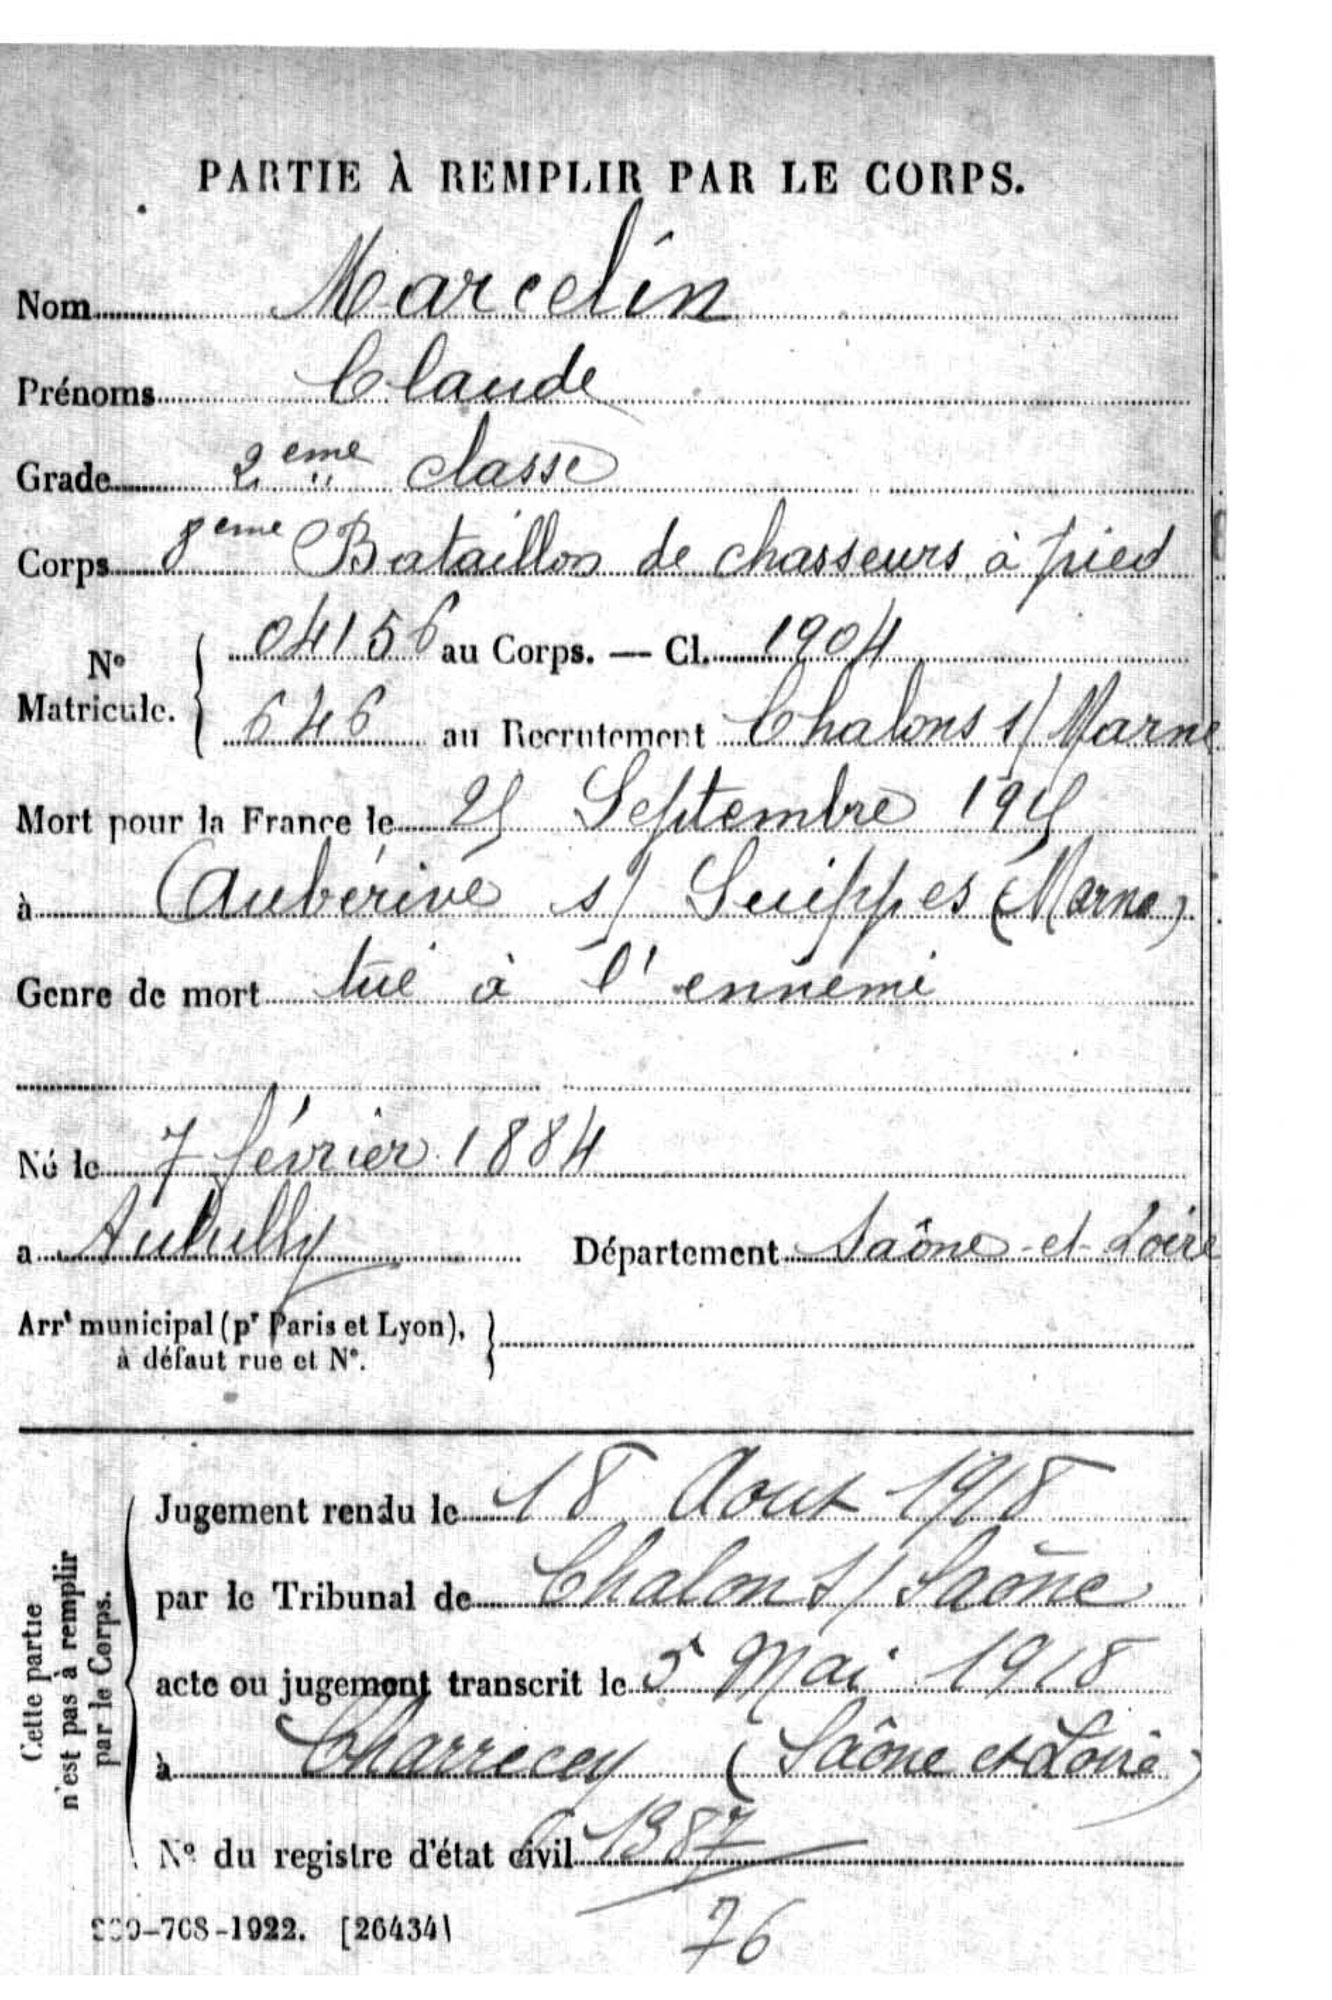 PARTIE À REMPLIR PAR LE CORPS.
Nom Marcelin
Prénoms Claude
Grade 2eme classe
Corps 8eme Bataillon de chasseurs à pied
N° Matricule. { 04156 au Corps. — Cl. 1904
646 au Recrutement Chalons s/ Marne
Mort pour la France le 25 Septembre 1915
à Aubérive s/ Suippes (Marne)
Genre de mort tué à l'ennemi
Né le 7 février 1884
a Département Saône-et-Loire
Arrt municipal (pr Paris et Lyon), }
à défaut rue et N°.
Cette partie n'est pas à remplir par le Corps.
Jugement rendu le 18 Aout 1918
par le Tribunal de Chalon s/ Saône
acte ou jugement transcrit le 5 Mai 1918
à Charrecey (Saône et Loire)
N° du registre d'état civil 1387
76
-708-1922. [26434]